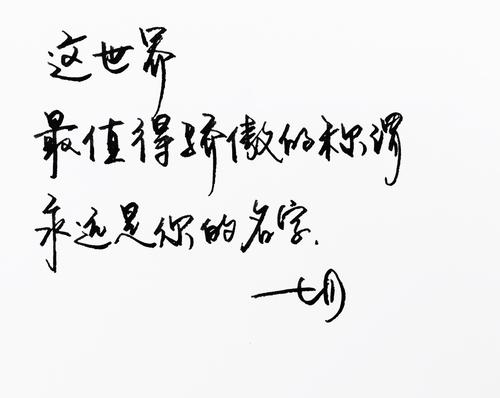 这世界
最值得骄傲的称谓
永远是你的名字.